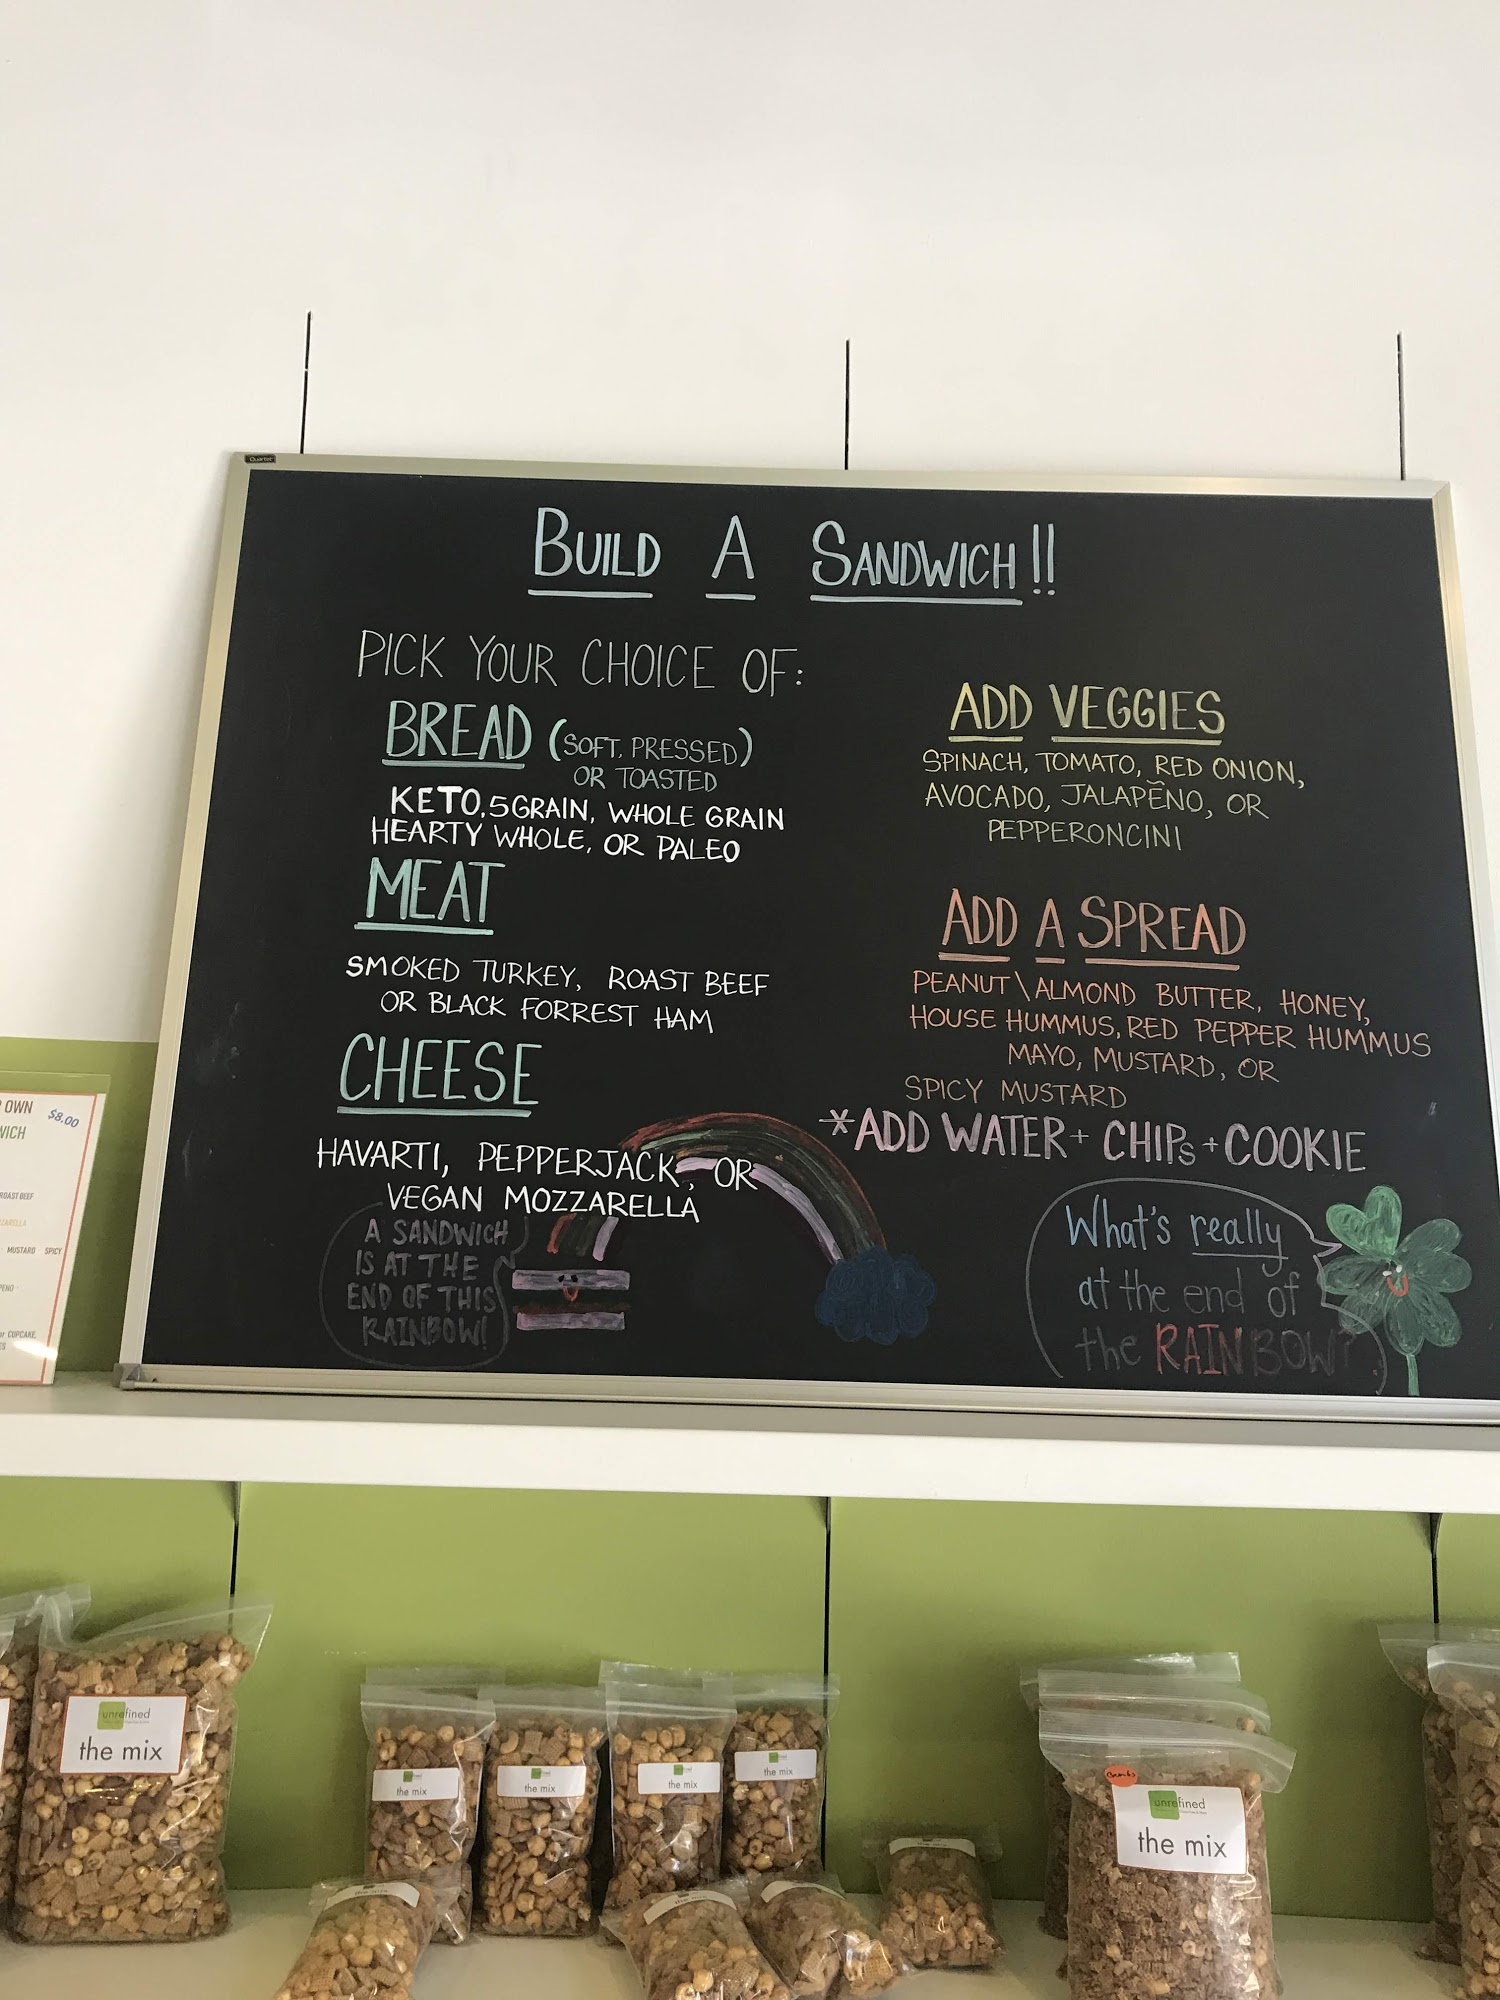 Quartet
BUILD A SANDWICH!!
PICK YOUR CHOICE OF:
BREAD (SOFT, PRESSED)
OR TOASTED
KETO, 5 GRAIN, WHOLE GRAIN
HEARTY WHOLE, OR PALEO
MEAT
SMOKED TURKEY, ROAST BEEF
OR BLACK FORREST HAM
CHEESE
HAVARTI, PEPPERJACK, OR
VEGAN MOZZARELLA
A SANDWICH
IS AT THE
END OF THIS
RAINBOW!
ADD VEGGIES
SPINACH, TOMATO, RED ONION,
AVOCADO, JALAPEÑO, OR
PEPPERONCINI
ADD A SPREAD
PEANUT\ALMOND BUTTER, HONEY,
HOUSE HUMMUS, RED PEPPER HUMMUS
MAYO, MUSTARD, OR
SPICY MUSTARD
*ADD WATER + CHIPS + COOKIE
What's really
at the end of
the RAINBOW?
OWN
$8.00
WICH
ROAST BEEF
MUSTARD SPICY
or CUPCAKE,
unrefined
the mix
the mix
the mix
the mix
the mix
unrefined
the mix